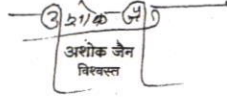 अशोक जैन
अशोक जैन
विश्वस्त